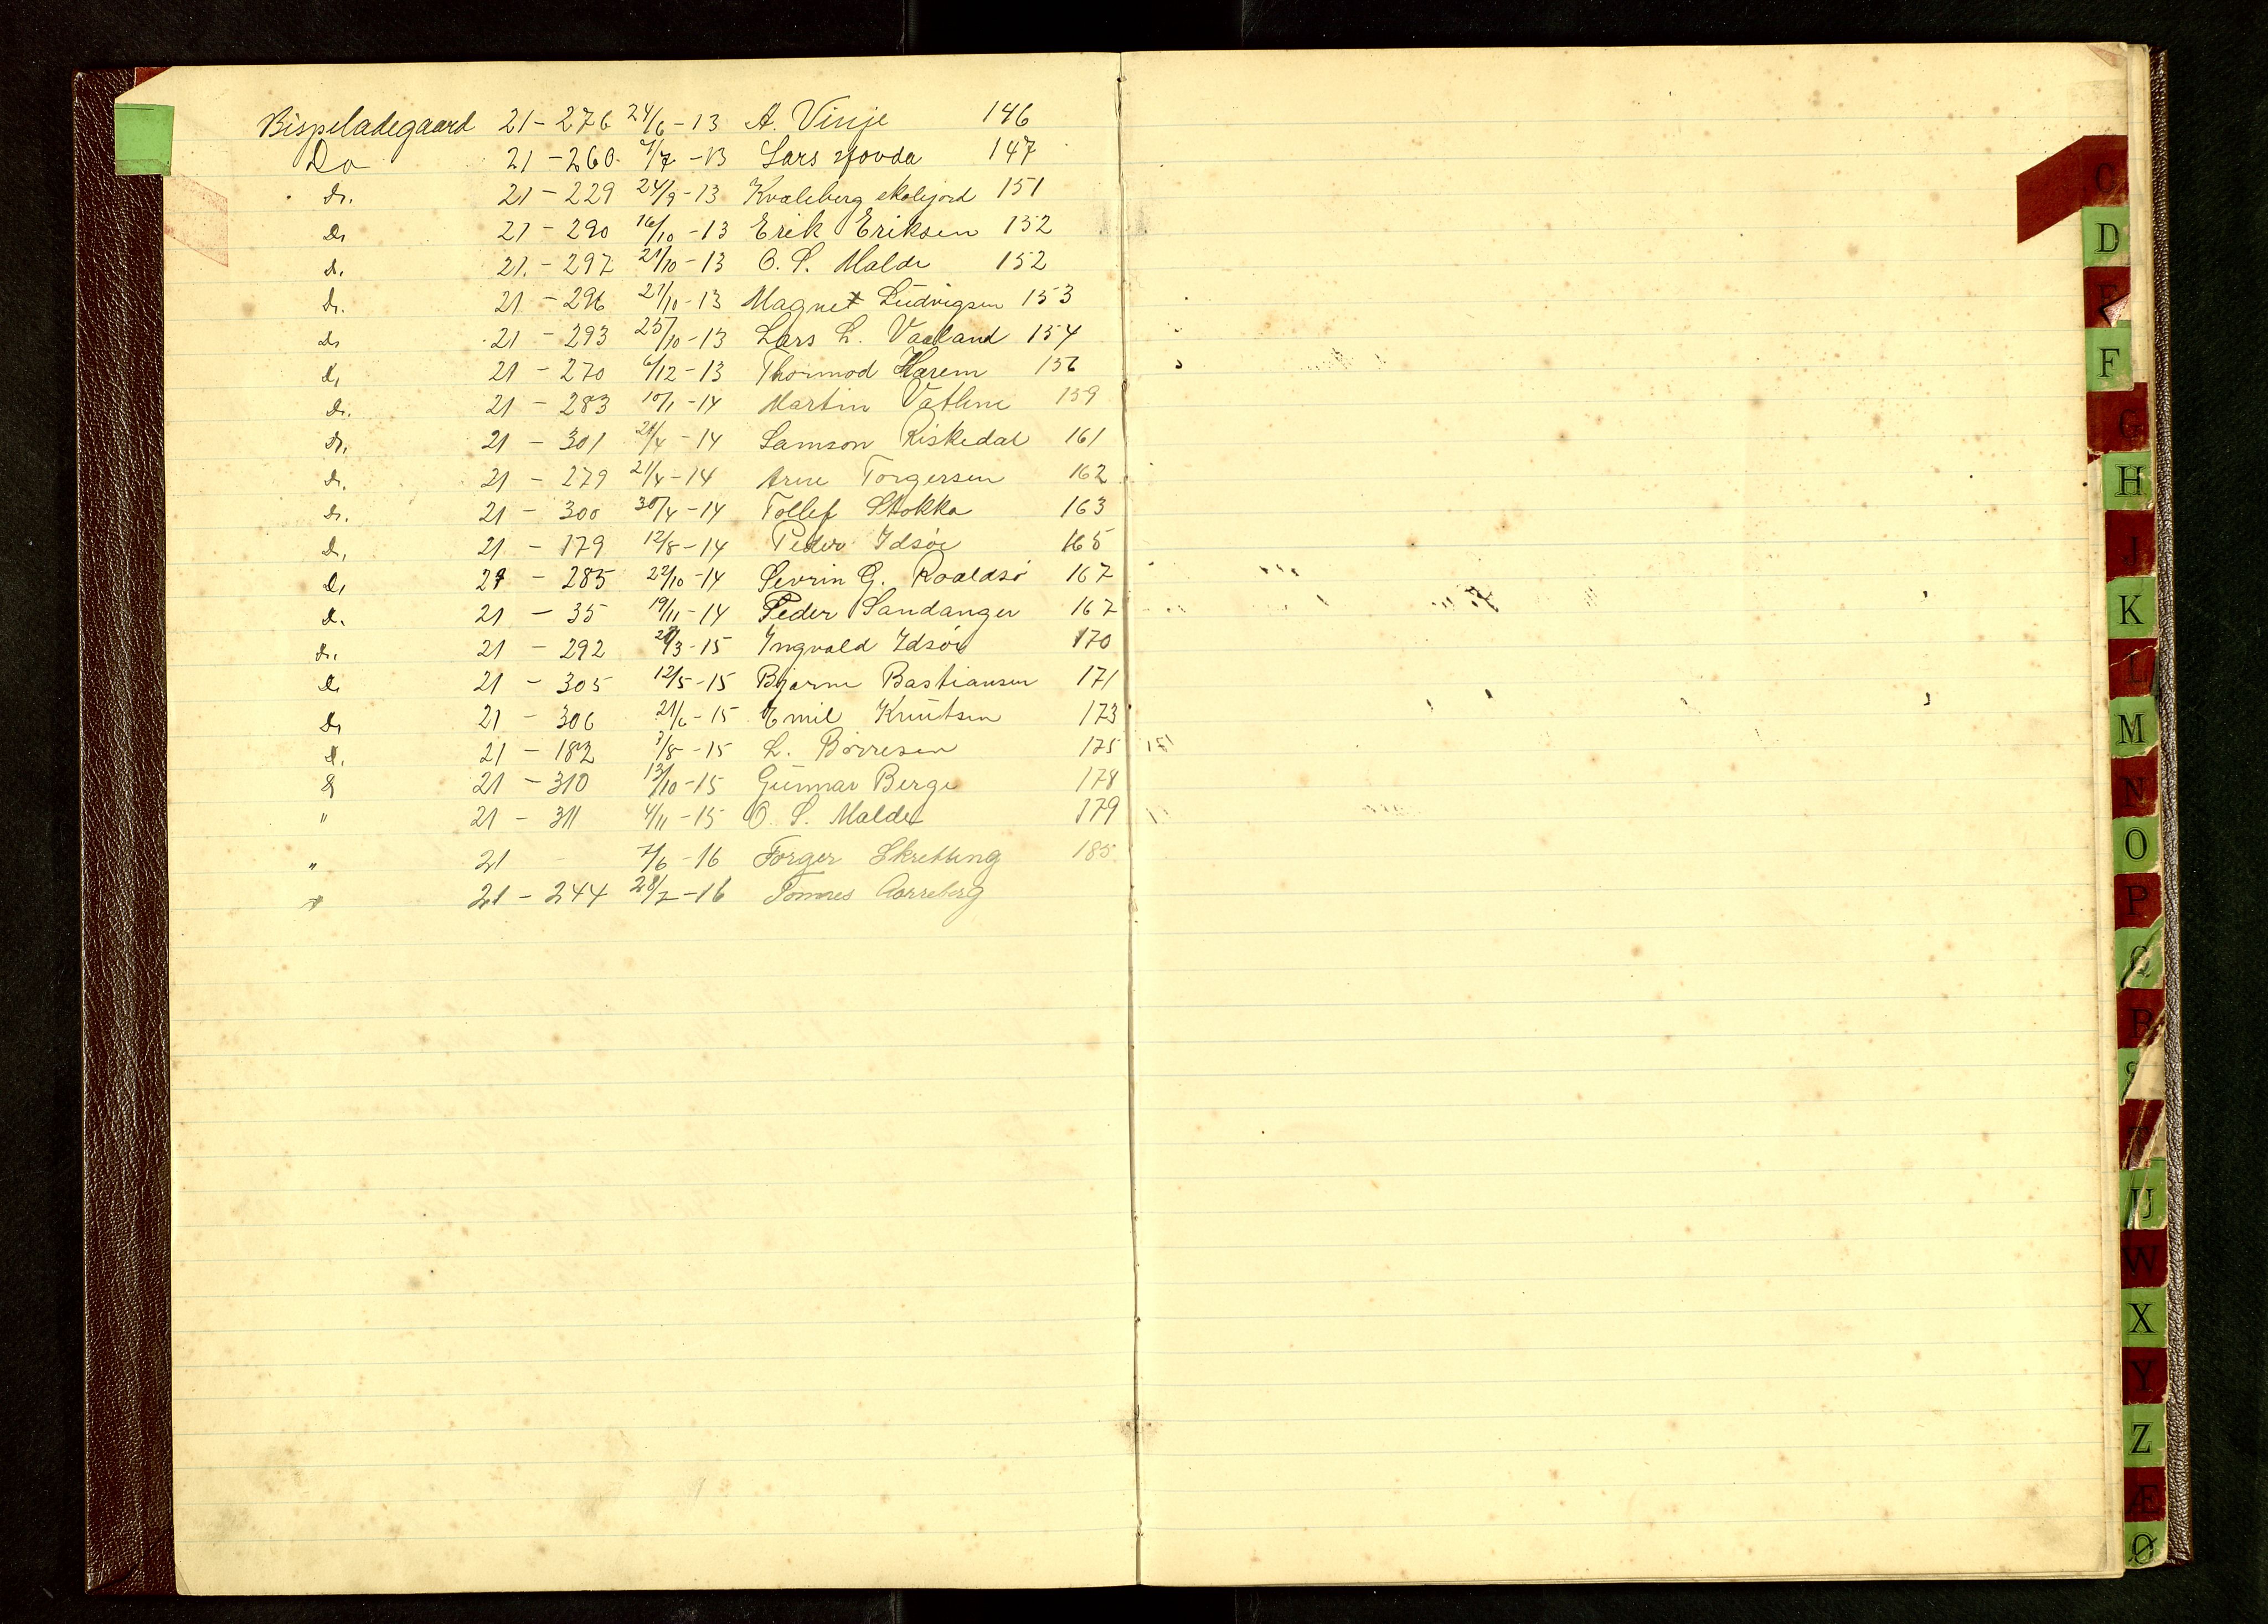 Bispeladegaard 21 - 276 24/6 - 13 A. Vinje 146
Do 21 - 260 7/7 - 13 Lars 147
Do. 21 - 229 24/9 - 13 Kvaleberg skolejord 151
Do 21 - 290 16/10 - 13 Erik Eriksen 152
Do. 21 - 297 21/10 - 13 O. S. Malde 152
Do. 21 - 296 21/10 - 13 Magnet Ludvigsen 153
Do 21 - 293 25/10 - 13 Lars L. Vaaland 154
Do 21 - 270 6/12 - 13 Thormod Harem 156
Do. 21 - 283 10/1 - 14 Martin Vathne 159
Do. 21 - 301 21/4 - 14 Samson Kiskedal 161
Do. 21 - 279 21/4 - 14 Arne Torgersen 162
Do. 21 - 300 30/4 - 14 Tollef Stokka 163
Do. 21 - 179 12/8 - 14 Peder Idsøe 165
Do 21 - 285 22/10 - 14 Sevrin G. Roaldsø 167
Do. 21 - 35 19/11 - 14 Peder Sandanger 167
Do. 21 - 292 /3 - 15 Ingvald Idsøe 170
Do 21 - 305 12/5 - 15 Bjarne Bastiansen 171
Do 21 - 306 21/6 - 15 Emil Knutsen 173
Do. 21 - 182 3/8 - 15 L. Børresen 175
Do 21 - 310 13/10 - 15 Gunnar Berge 178
" 21 - 311 4/11 - 15 O. S. Malde 179
" 21 - 7/6 - 16 Torger Skretting 185
" 21 - 244 28/7 - 16 Tønnes Aarreberg
C
D
E
F
G
H
J
K
L
M
N
O
P
Q
R
S
U
W
X
Y
Z
Æ
Ø